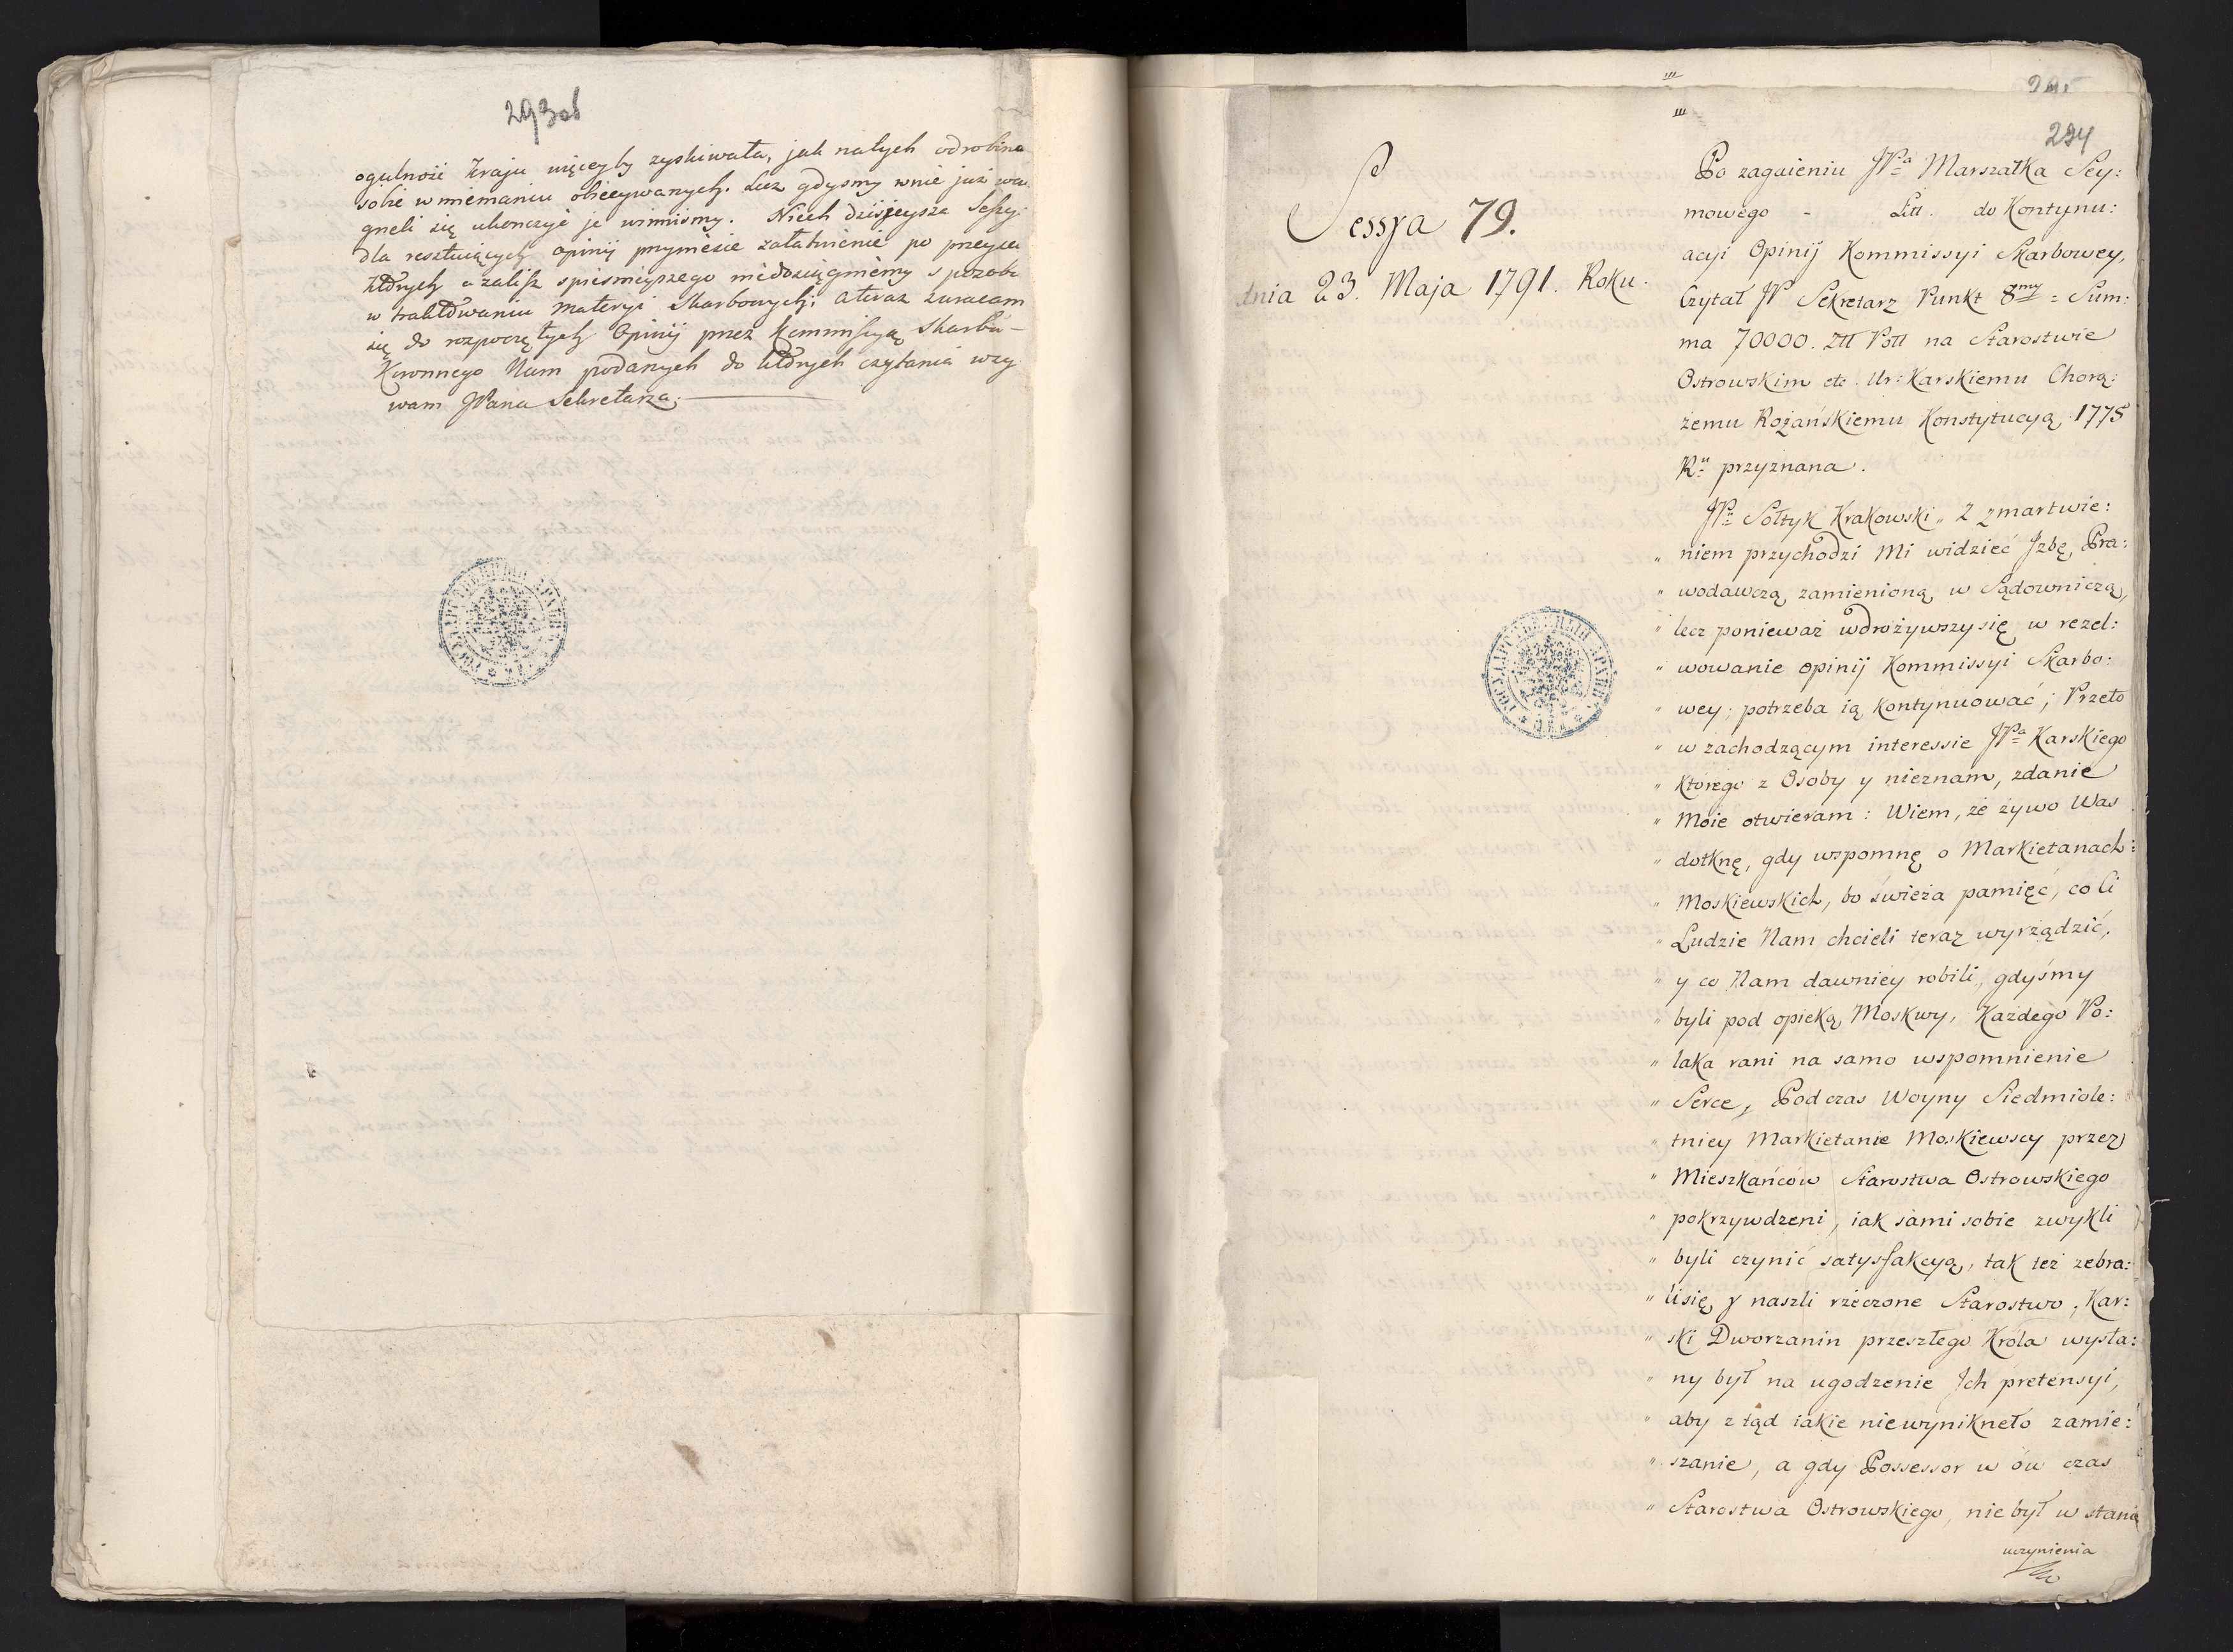 293ob
ogulność Kraju więcey by zyskiwała, jak na tych odrobina
sobie w mniemaniu obiecywanych. Lecz gdysmy w nie już wcią-
gneli się ukonczyć je winnismy. Niech dzisieysza Sessyi
dla resztuiących opinij przyniesie załatwienie po przeyści
których azalisz spiesznieyszego niedosciągniemy sposobu
w traktowaniu materyi Skarbowych; a teraz zwracam
się do rozpoczętych Opinij przez Kommissyą Skarbu-
Koronnego Nam podanych do których czytania wzy
wam JPana Sekretarza.
295
294
Sessya 79.
dnia 23. Maja 1791. Roku.
Po zagaieniu JPa Marszałka Sey:
mowego - Litt. do Kontynu:
acyi Opinij Kommissyi Skarbowey,
Czytał JP Sekretarz Punkt 8my = Sum:
ma 70000. Ztt Pott na Starostwie
Ostrowskim etc. Ur: Karskiemu Chorą:
żemu Rożańskiemu Konstytucyą 1775
Ru przyznana.
JPn Sołtyk Krakowski „ Z zmartwie:
„ niem przychodzi Mi widzieć Jzbę, Pra:
„ wodawczą zamienioną w Sądowniczą,
„ lecz ponieważ wdrożywszy się w rezol:
„ wowanie opinij Kommissyi Skarbo:
„ wey; potrzeba ią Kontynuować; Przeto
„ w zachodzącym interessie JPa Karskiego
„ Ktorego z Osoby y nieznam, zdanie
„ Moie otwieram: Wiem, że żywo Was
„ dotknę, gdy wspomnę o Markietanach:
„ Moskiewskich, bo świeża pamięć, co Ci
„ Ludzie Nam chcieli teraz wyrządzić,
„ y co Nam dawniey robili, gdyśmy
„ byli pod opieką Moskwy, Każdego Po:
„ laka rani na samo wspomnienie
„ Serce, Podczas Woyny Siedmiole:
„ tniey Markietanie Moskiewscy przez
„ Mieszkańców Starostwa Ostrowskiego
„ pokrzywdzeni, iak sami sobie zwykli
„ byli czynić satysfakcyą, tak też zebra:
„ li się y naszli rzeczone Starostwo, Kar:
„ ski Dworzanin przeszłego Króla wysła:
„ ny był na ugodzenie Jch pretensyi,
„ aby ztąd iakie niewynikneło zamie:
„ szanie, a gdy Possessor w ów czas
„ Starostwa Ostrowskiego, nie był w stanie
uczynienia